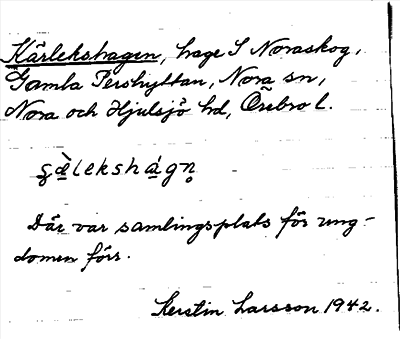 Kärlekshagen, hage S Noraskog,
Gamla Pershyttan, Nora sn,
Nora och Hjulsjö hd, Örebro l.
ʂæ̀lekshágn̥
Där var samlingsplats för ung-
domen förr.
Kerstin Larsson 1942.